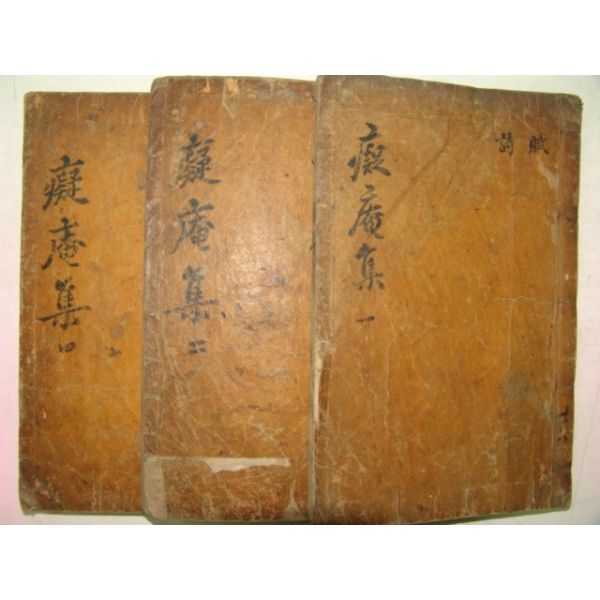 賦
詩
癡庵集 一
癡庵集 二
癡庵集 四